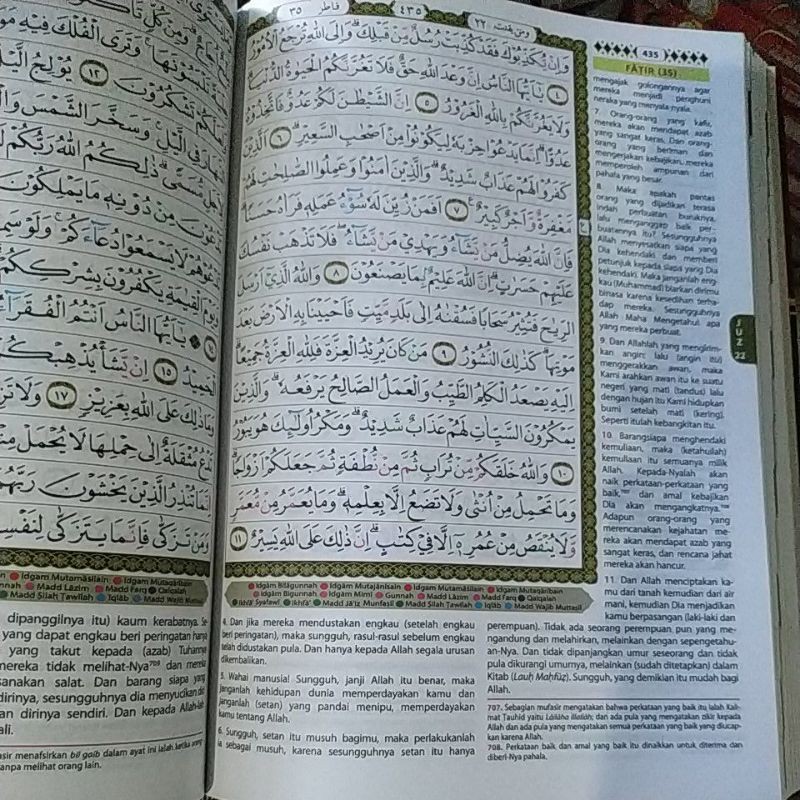 فاطر ٣٥
٤٣٥
ومن يقنت ٢٢
وَاِنْ يُّكَذِّبُوْكَ فَقَدْ كُذِّبَتْ رُسُلٌ مِّنْ قَبْلِكَۗ وَاِلَى اللّٰهِ تُرْجَعُ الْاُمُوْرُ
٤ يٰٓاَيُّهَا النَّاسُ اِنَّ وَعْدَ اللّٰهِ حَقٌّ فَلَا تَغُرَّنَّكُمُ الْحَيٰوةُ الدُّنْيَاۗ
وَلَا يَغُرَّنَّكُمْ بِاللّٰهِ الْغَرُوْرُ ٥ اِنَّ الشَّيْطٰنَ لَكُمْ عَدُوٌّ فَاتَّخِذُوْهُ
عَدُوًّاۗ اِنَّمَا يَدْعُوْا حِزْبَهٗ لِيَكُوْنُوْا مِنْ اَصْحٰبِ السَّعِيْرِۗ ٦ اَلَّذِيْنَ
كَفَرُوْا لَهُمْ عَذَابٌ شَدِيْدٌ ەۗ وَالَّذِيْنَ اٰمَنُوْا وَعَمِلُوا الصّٰلِحٰتِ لَهُمْ
مَّغْفِرَةٌ وَّاَجْرٌ كَبِيْرٌ ٧ اَفَمَنْ زُيِّنَ لَهٗ سُوْۤءُ عَمَلِهٖ فَرَاٰهُ حَسَنًاۗ
فَاِنَّ اللّٰهَ يُضِلُّ مَنْ يَّشَاۤءُ وَيَهْدِيْ مَنْ يَّشَاۤءُۖ فَلَا تَذْهَبْ نَفْسُكَ
عَلَيْهِمْ حَسَرٰتٍۗ اِنَّ اللّٰهَ عَلِيْمٌ ۢبِمَا يَصْنَعُوْنَ ٨ وَاللّٰهُ الَّذِيْٓ اَرْسَلَ
الرِّيٰحَ فَتُثِيْرُ سَحَابًا فَسُقْنٰهُ اِلٰى بَلَدٍ مَّيِّتٍ فَاَحْيَيْنَا بِهِ الْاَرْضَ بَعْدَ
مَوْتِهَاۗ كَذٰلِكَ النُّشُوْرُ ٩ مَنْ كَانَ يُرِيْدُ الْعِزَّةَ فَلِلّٰهِ الْعِزَّةُ جَمِيْعًاۗ
اِلَيْهِ يَصْعَدُ الْكَلِمُ الطَّيِّبُ وَالْعَمَلُ الصَّالِحُ يَرْفَعُهٗۗ وَالَّذِيْنَ
يَمْكُرُوْنَ السَّيِّاٰتِ لَهُمْ عَذَابٌ شَدِيْدٌۗ وَمَكْرُ اُولٰۤىِٕكَ هُوَ يَبُوْرُ
١٠ وَاللّٰهُ خَلَقَكُمْ مِّنْ تُرَابٍ ثُمَّ مِنْ نُّطْفَةٍ ثُمَّ جَعَلَكُمْ اَزْوَاجًاۗ
وَمَا تَحْمِلُ مِنْ اُنْثٰى وَلَا تَضَعُ اِلَّا بِعِلْمِهٖۗ وَمَا يُعَمَّرُ مِنْ مُّعَمَّرٍ
وَّلَا يُنْقَصُ مِنْ عُمُرِهٖٓ اِلَّا فِيْ كِتٰبٍۗ اِنَّ ذٰلِكَ عَلَى اللّٰهِ يَسِيْرٌ ١١
Idgām Bilāgunnah Idgām Mutajānisain Idgām Mutamāṡilain Idgām Mutaqāribain
Idgām Bigunnah Idgām Mīmī Gunnah Madd Lāzim Madd Farq Qalqalah
Ikhfā' Syafawī Ikhfā' Madd Jā'iz Munfaṣil Madd Ṣilah Ṭawīlah Iqlāb Madd Wājib Muttaṣil
4. Dan jika mereka mendustakan engkau (setelah engkau
beri peringatan), maka sungguh, rasul-rasul sebelum engkau
telah didustakan pula. Dan hanya kepada Allah segala urusan
dikembalikan.
5. Wahai manusia! Sungguh, janji Allah itu benar, maka
janganlah kehidupan dunia memperdayakan kamu dan
janganlah (setan) yang pandai menipu, memperdayakan
kamu tentang Allah.
6. Sungguh, setan itu musuh bagimu, maka perlakukanlah
ia sebagai musuh, karena sesungguhnya setan itu hanya
435
FĀṬIR (35)
mengajak golongannya agar
mereka menjadi penghuni
neraka yang menyala-nyala.
7. Orang-orang yang kafir,
mereka akan mendapat azab
yang sangat keras. Dan orang-
orang yang beriman dan
mengerjakan kebajikan, mereka
memperoleh ampunan dan
pahala yang besar.
8. Maka apakah pantas
orang yang dijadikan terasa
indah perbuatan buruknya,
lalu menganggap baik per-
buatannya itu? Sesungguhnya
Allah menyesatkan siapa yang
Dia kehendaki dan memberi
petunjuk kepada siapa yang Dia
kehendaki. Maka janganlah eng-
kau (Muhammad) biarkan dirimu
binasa karena kesedihan terha-
dap mereka. Sesungguhnya
Allah Maha Mengetahui apa
yang mereka perbuat.
9. Dan Allahlah yang mengirim-
kan angin; lalu (angin itu)
menggerakkan awan, maka
Kami arahkan awan itu ke suatu
negeri yang mati (tandus) lalu
dengan hujan itu Kami hidupkan
bumi setelah mati (kering).
Seperti itulah kebangkitan itu.
10. Barangsiapa menghendaki
kemuliaan, maka (ketahuilah)
kemuliaan itu semuanya milik
Allah. Kepada-Nyalah akan
naik perkataan-perkataan yang
baik,707 dan amal kebajikan
Dia akan mengangkatnya.708
Adapun orang-orang yang
merencanakan kejahatan me-
reka akan mendapat azab yang
sangat keras, dan rencana jahat
mereka akan hancur.
11. Dan Allah menciptakan ka-
mu dari tanah kemudian dari air
mani, kemudian Dia menjadikan
kamu berpasangan (laki-laki dan
perempuan). Tidak ada seorang perempuan pun yang me-
ngandung dan melahirkan, melainkan dengan sepengetahu-
an-Nya. Dan tidak dipanjangkan umur seseorang dan tidak
pula dikurangi umurnya, melainkan (sudah ditetapkan) dalam
Kitab (Lauḥ Maḥfūẓ). Sungguh, yang demikian itu mudah bagi
Allah.
707. Sebagian mufasir mengatakan bahwa perkataan yang baik itu ialah Kali-
mat Tauhid yaitu Lāilāha illallāh; dan ada pula yang mengatakan zikir kepada
Allah dan ada pula yang mengatakan semua perkataan yang baik yang diucap-
kan karena Allah.
708. Perkataan baik dan amal yang baik itu dinaikkan untuk diterima dan
diberi-Nya pahala.
JUZ 22
تَلْبَسُوْنَهَاۚ وَتَرَى الْفُلْكَ فِيْهِ
تَشْكُرُوْنَ ١٢ يُوْلِجُ الَّيْلَ
فِى الَّيْلِۙ وَسَخَّرَ الشَّمْسَ
مُّسَمًّىۗ ذٰلِكُمُ اللّٰهُ رَبُّكُمْ
مِنْ دُوْنِهٖ مَا يَمْلِكُوْنَ
لَا يَسْمَعُوْا دُعَاۤءَكُمْۚ وَلَوْ
وَيَوْمَ الْقِيٰمَةِ يَكْفُرُوْنَ بِشِرْكِكُمْۗ
يٰٓاَيُّهَا النَّاسُ اَنْتُمُ الْفُقَرَاۤءُ
الْحَمِيْدُ ١٥ اِنْ يَّشَأْ يُذْهِبْكُمْ
وَمَا ذٰلِكَ عَلَى اللّٰهِ بِعَزِيْزٍ ١٧ وَلَا
مُثْقَلَةٌ اِلٰى حِمْلِهَا لَا يُحْمَلْ
اِنَّمَا تُنْذِرُ الَّذِيْنَ يَخْشَوْنَ رَبَّهُمْ
وَمَنْ تَزَكّٰى فَاِنَّمَا يَتَزَكّٰى لِنَفْسِهٖۗ
Idgām Mutamāṡilain Idgām Mutaqāribain
Madd Lāzim Madd Farq Qalqalah
Madd Ṣilah Ṭawīlah Iqlāb Madd Wājib Muttaṣil
dipanggilnya itu) kaum kerabatnya. Se-
yang dapat engkau beri peringatan hanya
yang takut kepada (azab) Tuhannya
mereka tidak melihat-Nya709 dan mereka
sanakan salat. Dan barang siapa yang
dirinya, sesungguhnya dia menyucikan diri
an dirinya sendiri. Dan kepada Allah-lah
ali.
asir menafsirkan bil goib dalam ayat ini ialah ketika orang
tanpa melihat orang lain.